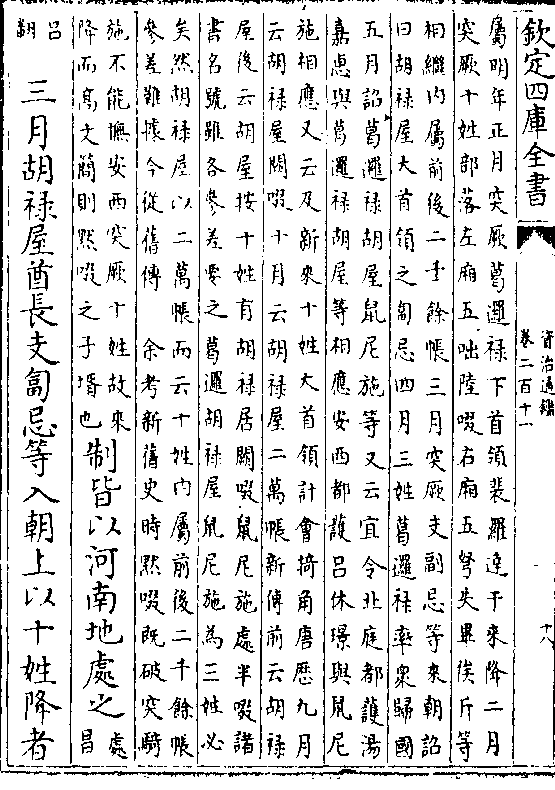 欽定四庫全書
資治通鑑
卷二百十一
十八
屬明年正月突厥葛邏祿下首領裴羅達干來降二月
突厥十姓部落左廂五咄陸啜右廂五弩失畢俟斤等
相繼内屬前後二千餘帳三月突厥支副忌等來朝詔
曰胡祿屋大首領之匐忌四月三姓葛邏祿率衆歸國
五月詔葛邏祿胡屋鼠尼施等又云宜令北庭都護湯
嘉惠與葛邏祿胡屋等相應安西都護吕休璟與鼠尼
施相應又云及新來十姓大首領計會掎角唐歷九月
云胡祿屋闕啜十月云胡祿屋二萬帳新傳前云胡祿
屋後云胡屋按十姓有胡祿居闕啜鼠尼施處半啜諸
書名號雖各參差要之葛邏胡祿屋鼠尼施為三姓必
矣然胡祿屋以二萬帳而云十姓内屬前後二千餘帳
參差難據今從舊傳　余考新舊史時默啜既破突騎
施不能撫安西突厥十姓故來
降而高文簡則默啜之子壻也制皆以河南地處之處
昌
吕
翻三月胡祿屋酋長支匐忌等入朝上以十姓降者